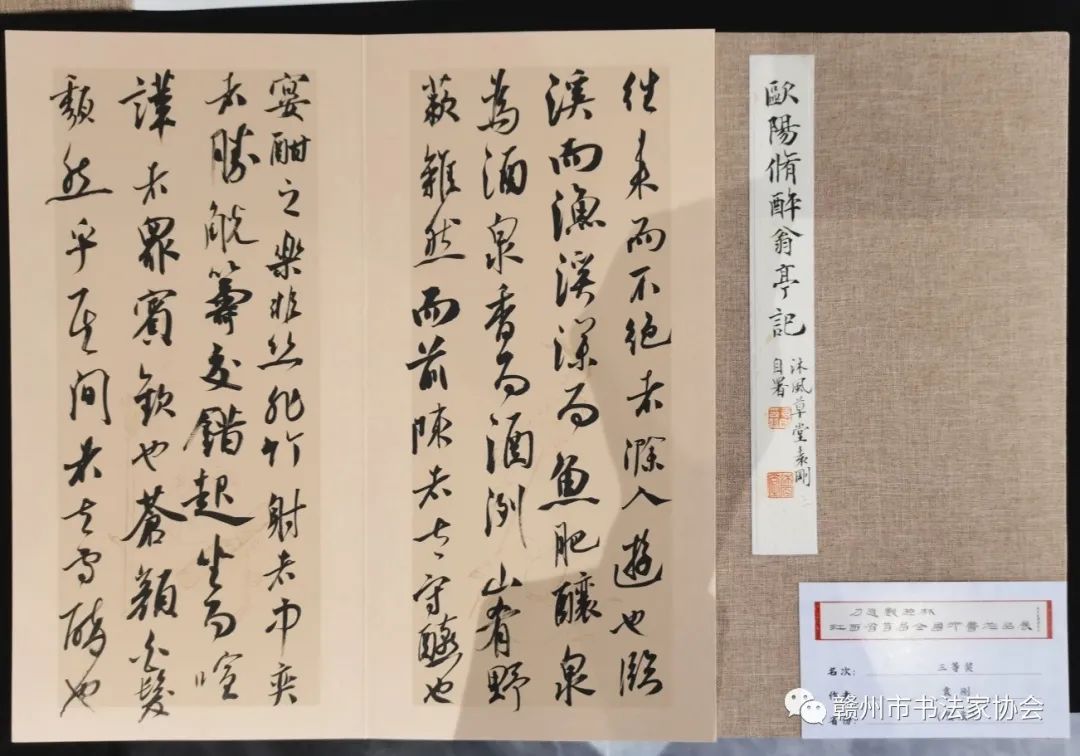 往来而不絶者滁人遊也臨
溪而漁溪深而魚肥釀泉
為酒泉香而酒洌山肴野
蔌雜然而前陳者太守醼也
宴酣之樂非丝非竹射者中奕
者勝觥籌交錯起坐而喧
譁者眾賓歡也蒼顏白髮
頹然乎其间者太守醉也
歐陽脩醉翁亭記
沐風草堂袁剛
自署
江西省首届
名次: 三等奖
作者: 袁刚
赣州市书法家协会